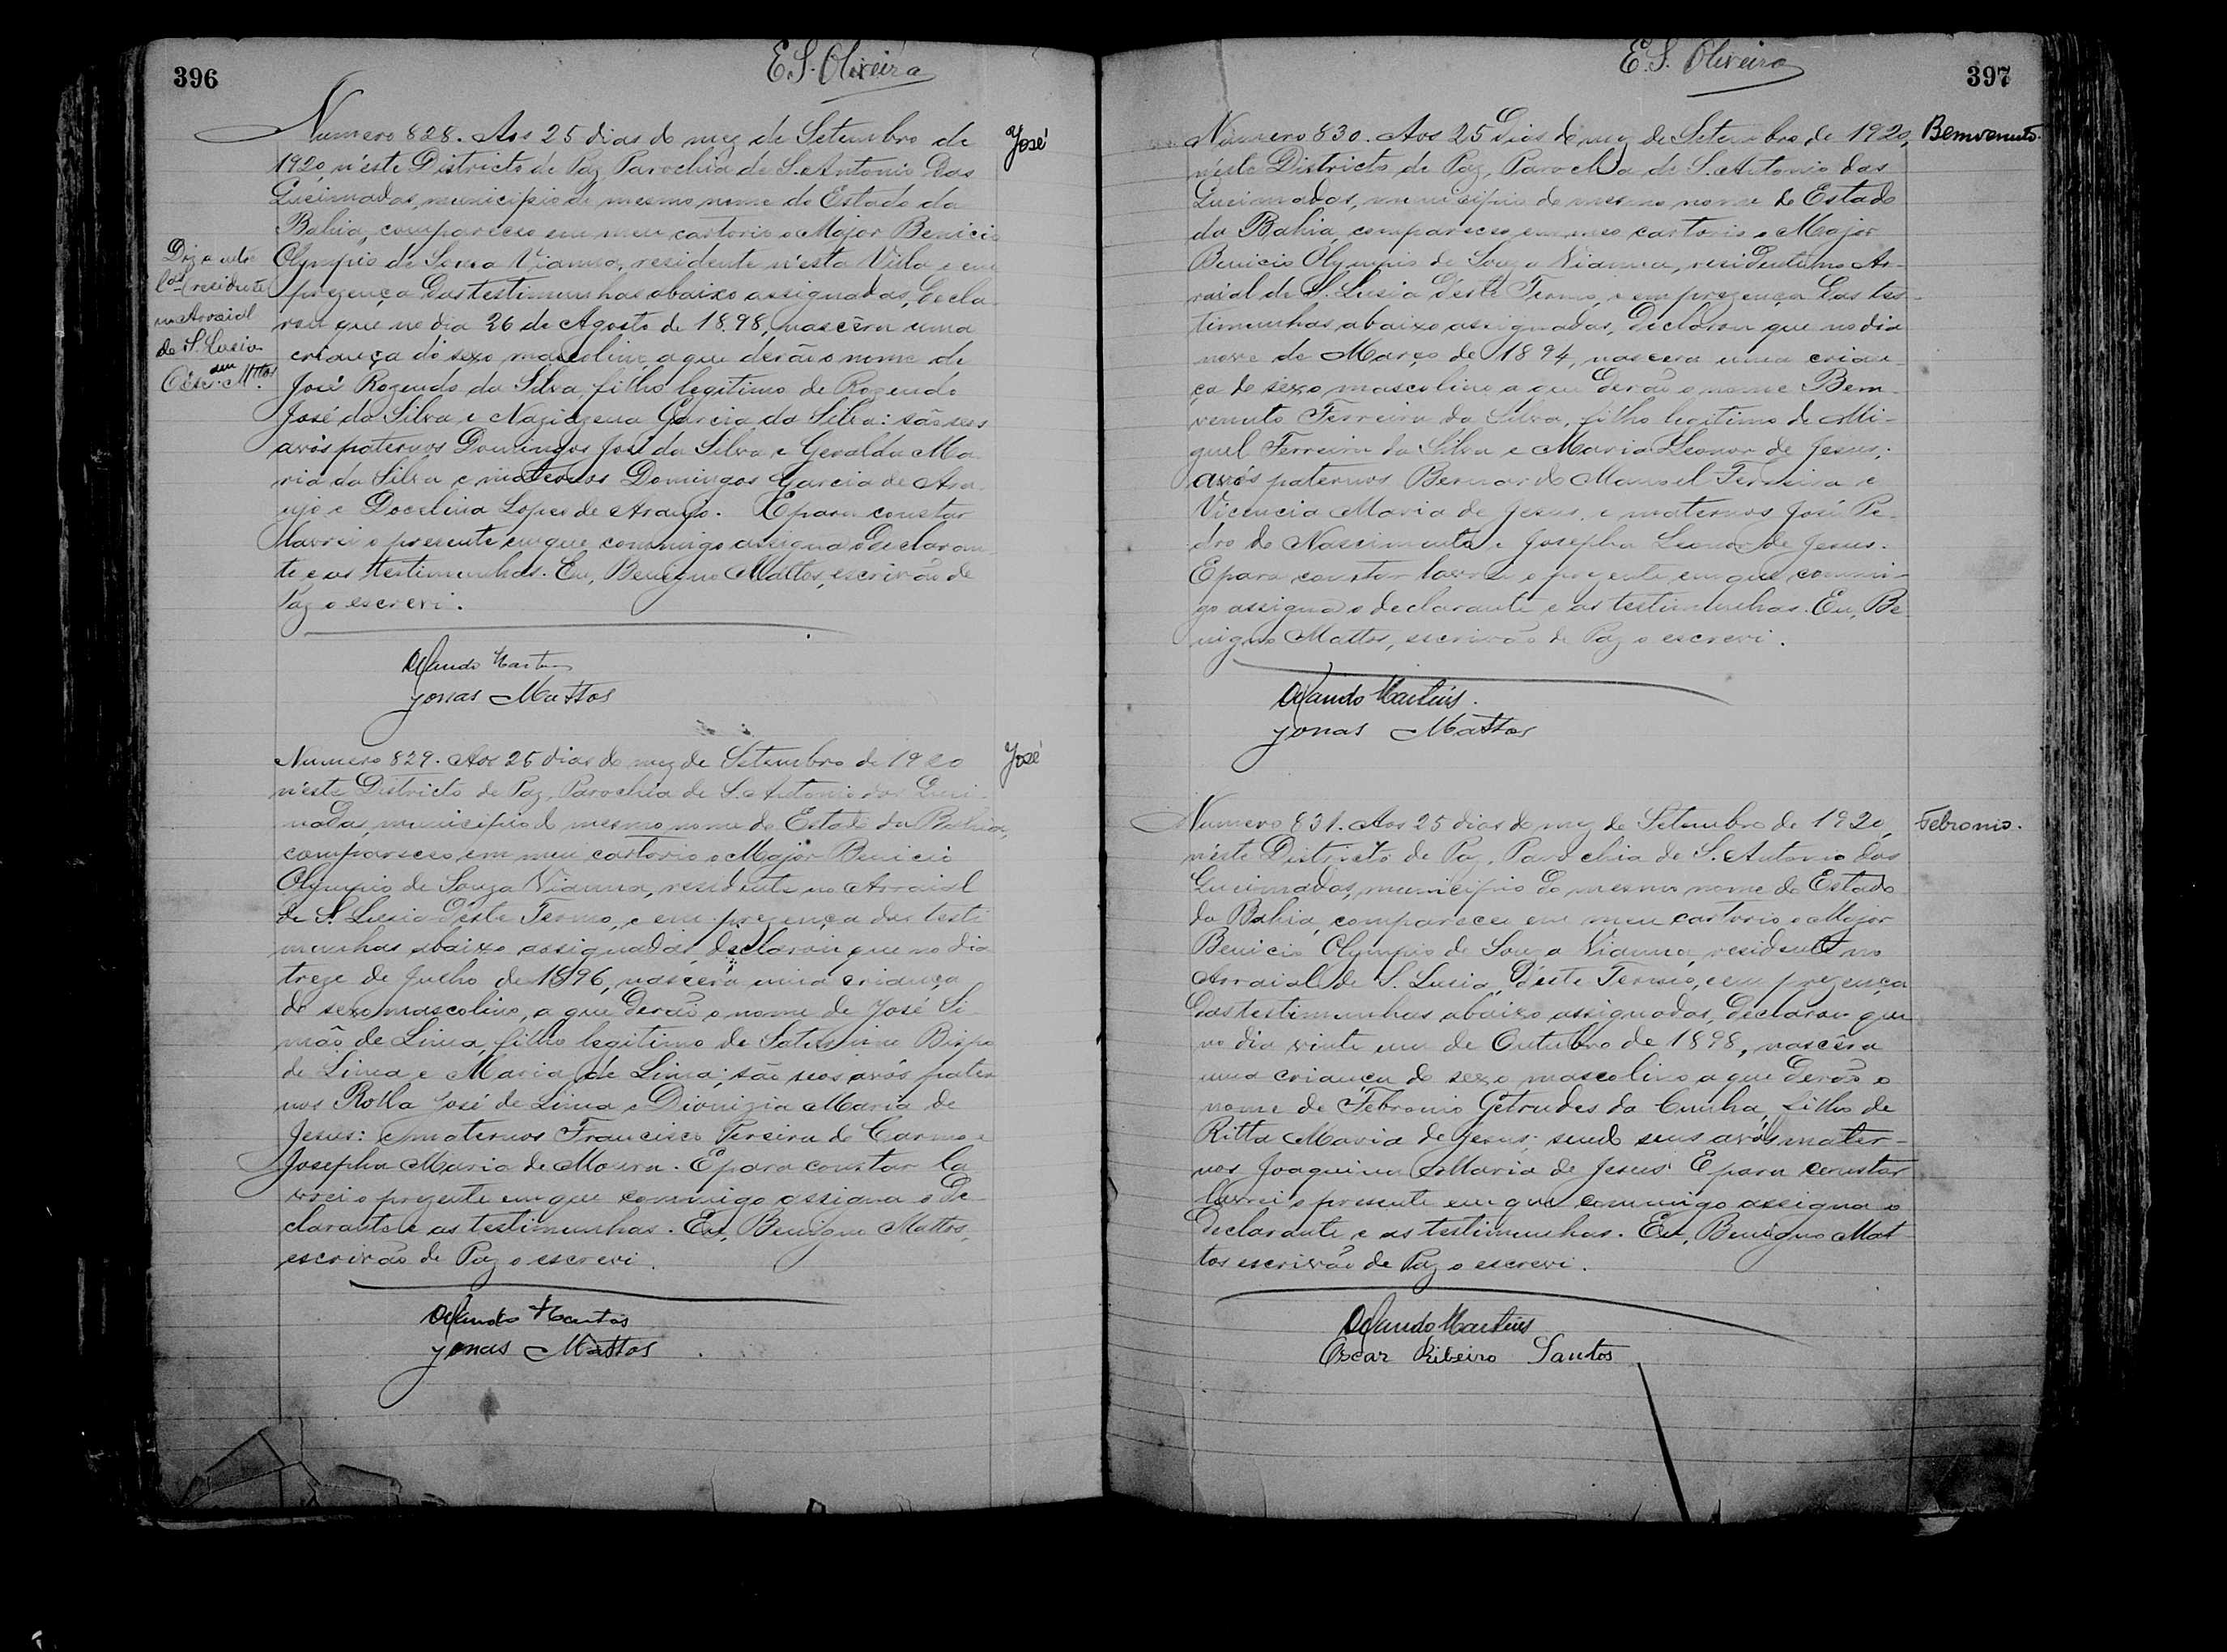 396
E. S. Oliveira
Numero 828. Aos 25 dias do mez de Setembro de
José
1920, n'este Districto de Paz, Parochia de S. Antonio das
Queimadas, municipio de mesmo nome do Estado da
Bahia, compareceu em meu cartorio o Major Benicio
Olympio de Souza Vianna, residente n'esta Villa e em
prezença das testimunhas abaixo assignadas, decla-
rou que no dia 26 de Agosto de 1898, nascêra uma
criança do sexo masculino, a que derão o nome de
José Rozendo da Silva, filho legitimo de Rozendo
José da Silva e Naziazena Garcia da Silva: são seus
avós paternos Domingos José da Silva e Geralda Ma-
ria da Silva e maternos Domingos Garcia de Ara-
ujo e Docelina Lopes de Araujo. E para constar
lavrei o presente em que commigo assigna o declaran-
te e as testimunhas. Eu, Benigno Mattos, escrivão de
Paz o escrevi.
residente
no Arraial
de S. Lusia
Orlando Martins
Jonas Mattos
Numero 829. Aos 25 dias do mez de Setembro de 1920
José
n'este Districto de Paz, Parochia de S. Antonio das Quei-
madas, municipio do mesmo nome do Estado da Bahia,
compareceo em meu cartorio o Major Benicio
Olympio de Souza Vianna, residente no Arraial
de S. Lusia d'este Termo, e em prezença das testi-
munhas abaixo assignadas, declarou que no dia
treze de Julho de 1896, nascêra uma criança
do sexo mascolino, a que derão o nome de José Si-
mão de Lima, filho legitimo de Saturnino Bispo
de Lima e Maria de Lima; são seos avós pater-
nos Rolla José de Lima e Dionizia Maria de
Jesus: e maternos Francisco Pereira do Carmo e
Josepha Maria de Moura. E para constar la-
vrei o prezente em que commigo assigna o de-
clarante e as testimunhas. Eu, Benigno Mattos,
escrivão de Paz o escrevi.
Orlando Martins
Jonas Mattos
E. S. Oliveira
397
Numero 830. Aos 25 dias do mez de Setembro de 1920,
Bemvenuto.
n'este Districto de Paz, Parochia de S. Antonio das
Queimadas, municipio do mesmo nome do Estado
da Bahia, compareceo em meo cartorio o Major
Benicio Olympio de Souza Vianna, residente no Ar-
raial de S. Lusia d'este Termo, e em prezença das tes-
timunhas abaixo assignadas, declarou que no dia
nove de Março de 1894, nascera uma crian-
ça do sexo mascolino a que derão o nome Bem-
venuto Ferreira da Silva, filho legitimo de Mi-
guel Ferreira da Silva e Maria Leonor de Jesus;
avós paternos Bernardo Manoel Ferreira e
Vicencia Maria de Jesus, e maternos José Pe-
dro do Nascimento e Josepha Leonor de Jesus.
E para constar lavrei o prezente em que commi-
go assigna o declarante e as testimunhas. Eu, Be-
nigno Mattos, escrivão de Paz o escrevi.
Orlando Martins.
Jonas Mattos
Numero 831. Aos 25 dias do mez de Setembro de 1920,
Febronio.
n'este Districto de Paz, Parochia de S. Antonio das
Queimadas, municipio do mesmo nome do Estado
da Bahia, compareceu em meu cartorio o Major
Benicio Olympio de Souza Vianna, residente no
Arraial de S. Lusia, d'este Termo, e em prezença
das testimunhas abaixo assignadas, declarou que
no dia vinte um de Outubro de 1898, nascêra
uma criança do sexo mascolino a que derão o
nome de Febronio Getrudes da Cunha, filho de
Ritta Maria de Jesus; sendo seus avós mater-
nos Joaquina Maria de Jesus. E para constar
lavrei o presente em que commigo assigna o
declarante e as testimunhas. Eu, Benigno Mat-
tos escrivão de Paz o escrevi.
Orlando Martins
Oscar Ribeiro Santos